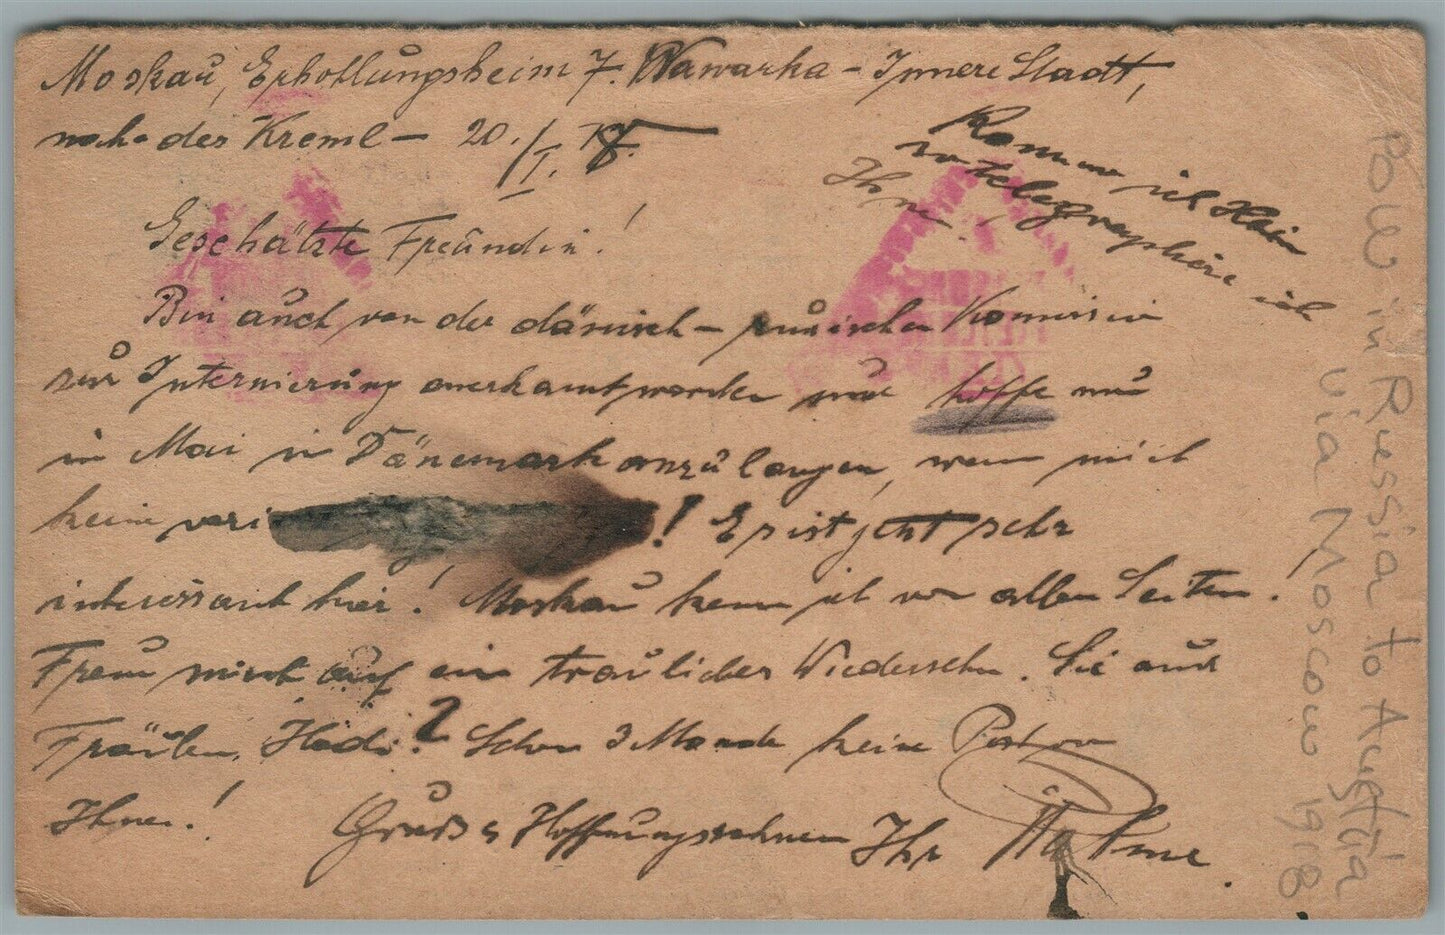 Moskau, Erhollungsheim 7. Wawarka - Innere Stadt,
nahe des Kreml - 20./I. 18.
Komm ich Heim
so telegraphire ich
Ihnen!
Geschätzte Freundin!
Bin auch von der dänisch - russischen Kommission
zur Internierung anerkannt worden und hoffe nun
in Mai in Dänemark anzulangen, wenn mich
keine ! Es ist jetzt sehr
interessant hier! Moskau kenn ich von allen Seiten.
Freu mich auf ein trauliches Wiedersehn. Sie auch
Fräulein Hedi? Schon 3 Monate keine Post von
Ihnen! Gruß & Hoffnungssehnen Ihr
POW in Russia to Austria
via Moscow 1918